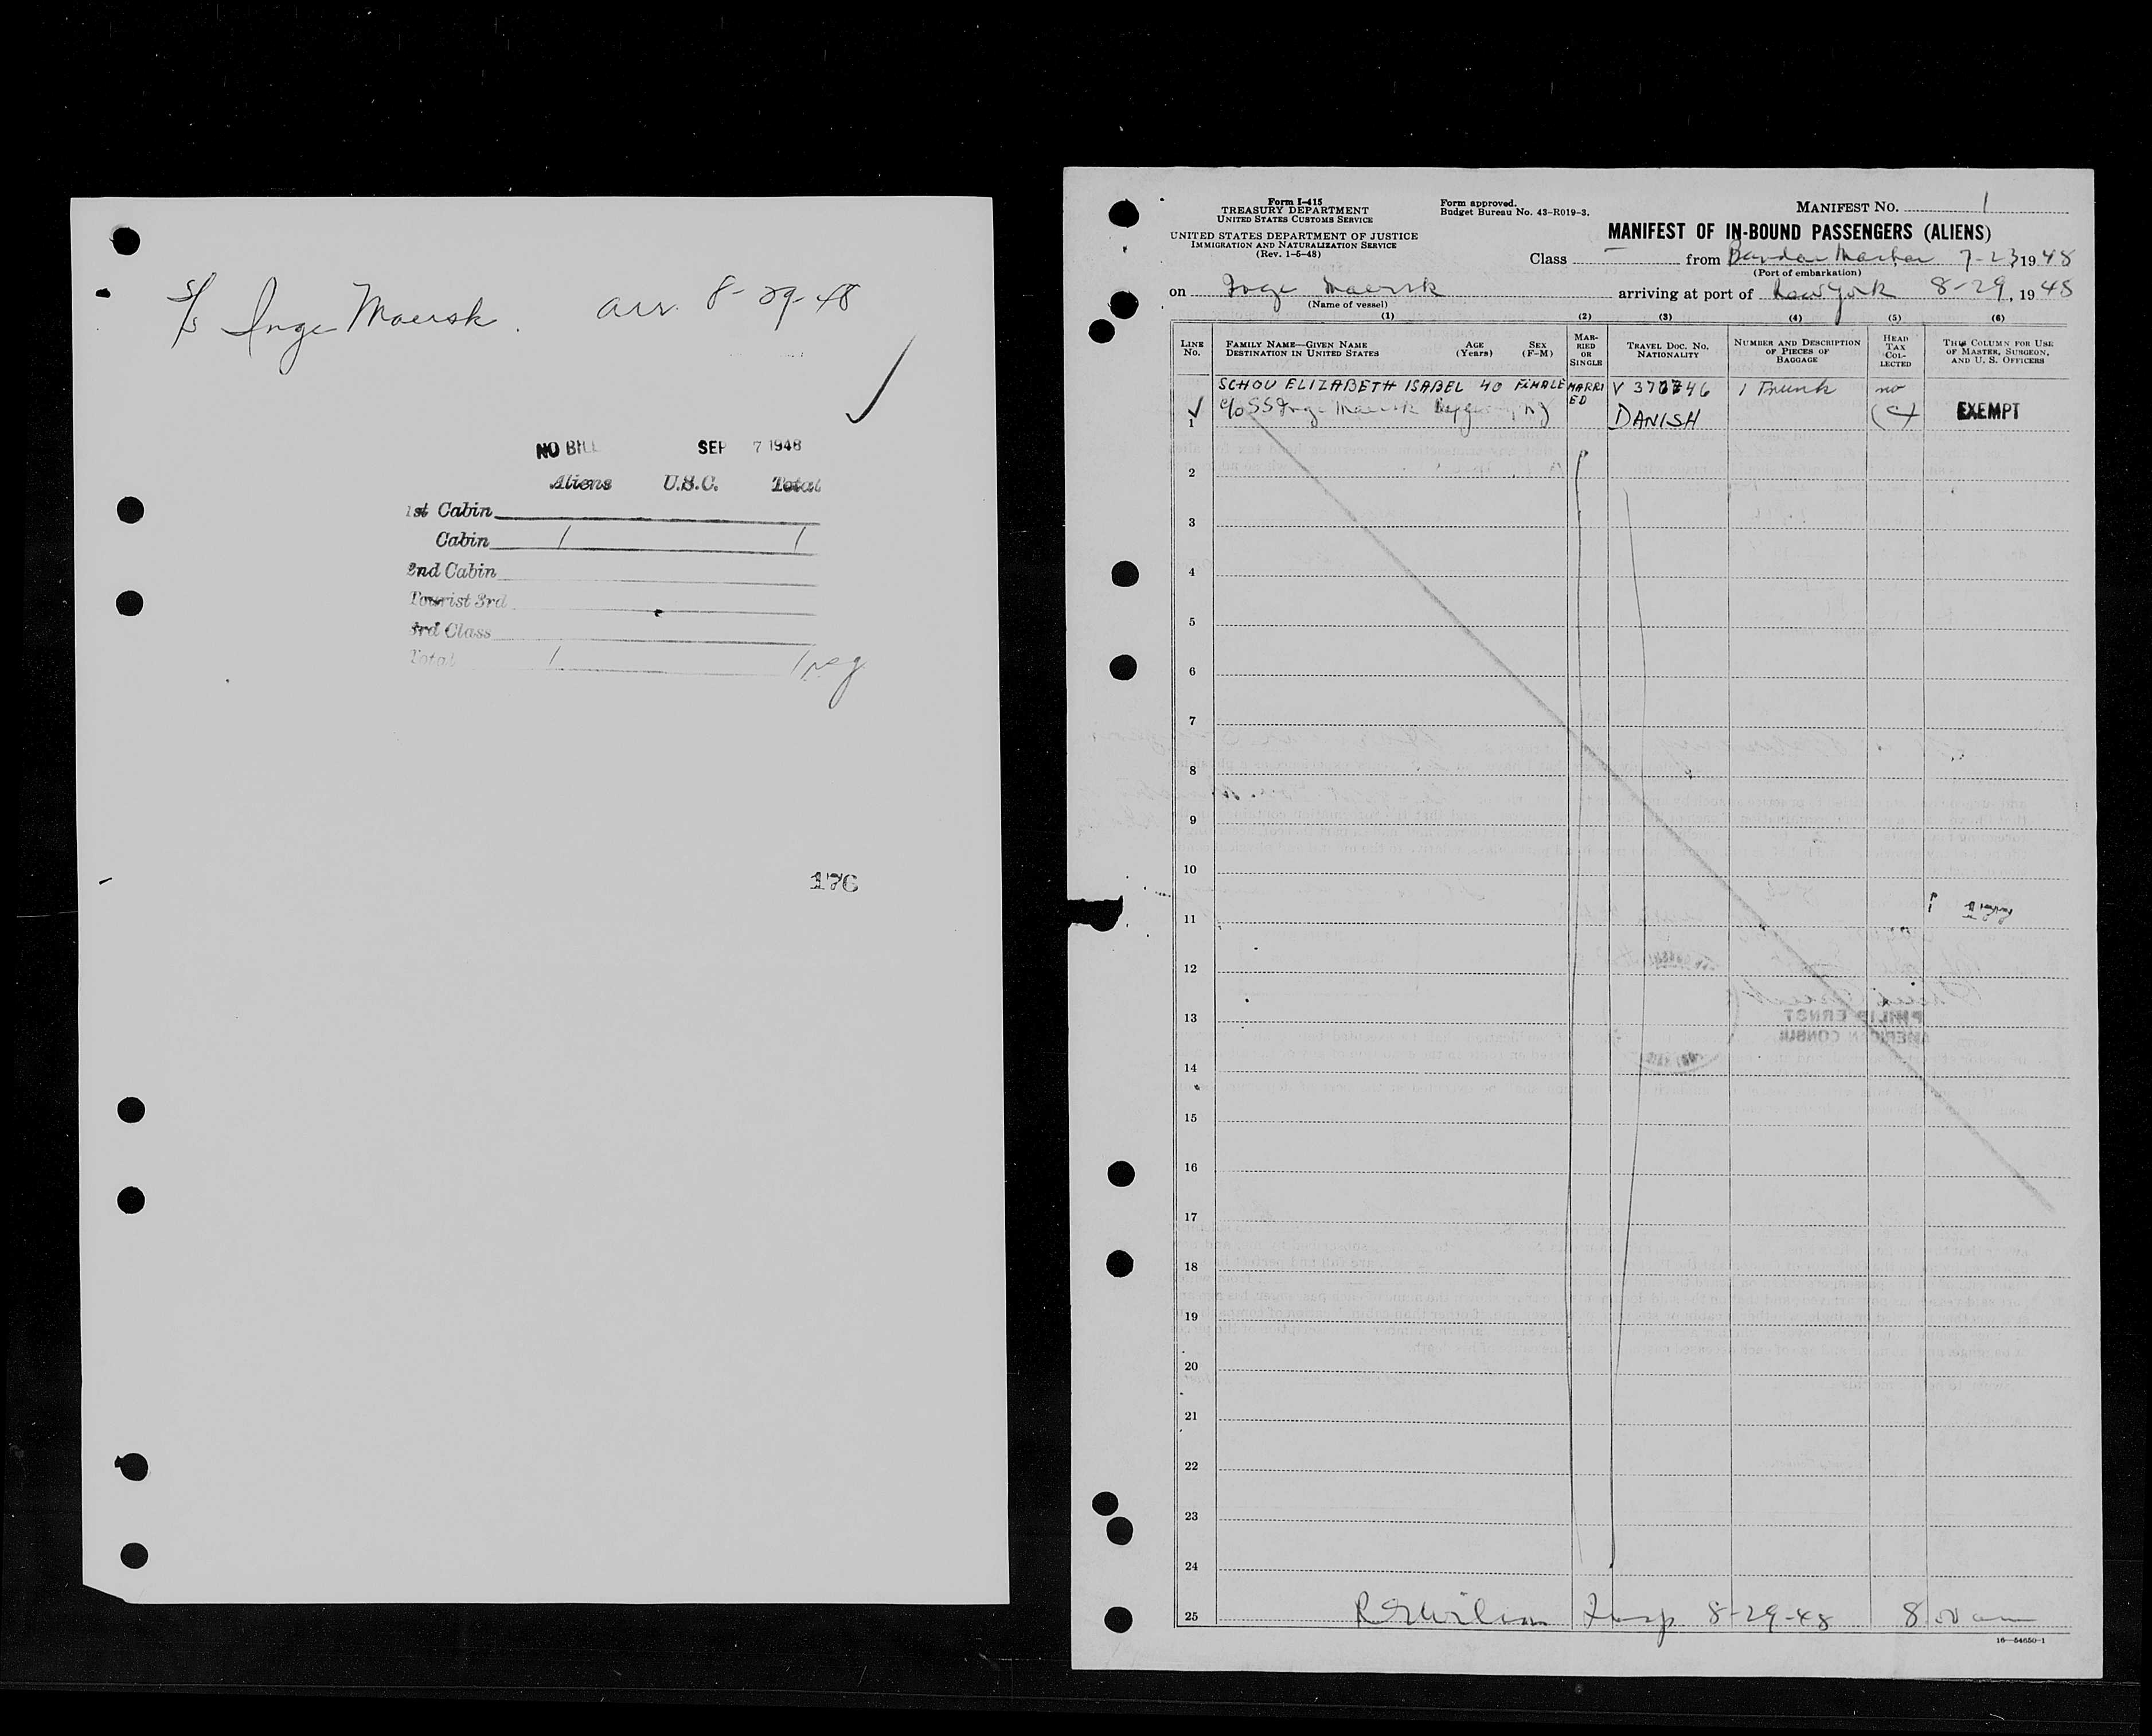 S/S Inge Maersk. arr. 8-29-48
NO BILL SEP 7 1948
Aliens U.S.C. Total
1st Cabin
Cabin 1 1
2nd Cabin
Tourist 3rd
3rd Class
Total 1 1
176
Form I-415
TREASURY DEPARTMENT
UNITED STATES CUSTOMS SERVICE
UNITED STATES DEPARTMENT OF JUSTICE
IMMIGRATION AND NATURALIZATION SERVICE
(Rev. 1-6-48)
Form approved.
Budget Bureau No. 43-R019-3.
MANIFEST NO. 1
MANIFEST OF IN-BOUND PASSENGERS (ALIENS)
Class — from Bandar 7-23 1948
(Port of embarkation)
on Inge Maersk arriving at port of New York 8-29, 1948
(Name of vessel)
(1) (2) (3) (4) (5) (6)
LINE NO.
FAMILY NAME—GIVEN NAME
DESTINATION IN UNITED STATES
AGE (Years)
SEX (F-M)
MARRIED OR SINGLE
TRAVEL DOC. NO. NATIONALITY
NUMBER AND DESCRIPTION OF PIECES OF BAGGAGE
HEAD TAX COLLECTED
THIS COLUMN FOR USE OF MASTER, SURGEON, AND U. S. OFFICERS
SCHOU ELIZABETH ISABEL 40 FEMALE MARRIED V 377746 1 Trunk no
1 c/o SS Inge Maersk NJ DANISH EXEMPT
2
3
4
5
6
7
8
9
10
11
12
13
14
15
16
17
18
19
20
21
22
23
24
25 Insp 8-29-48 8 00 am
16—54650-1